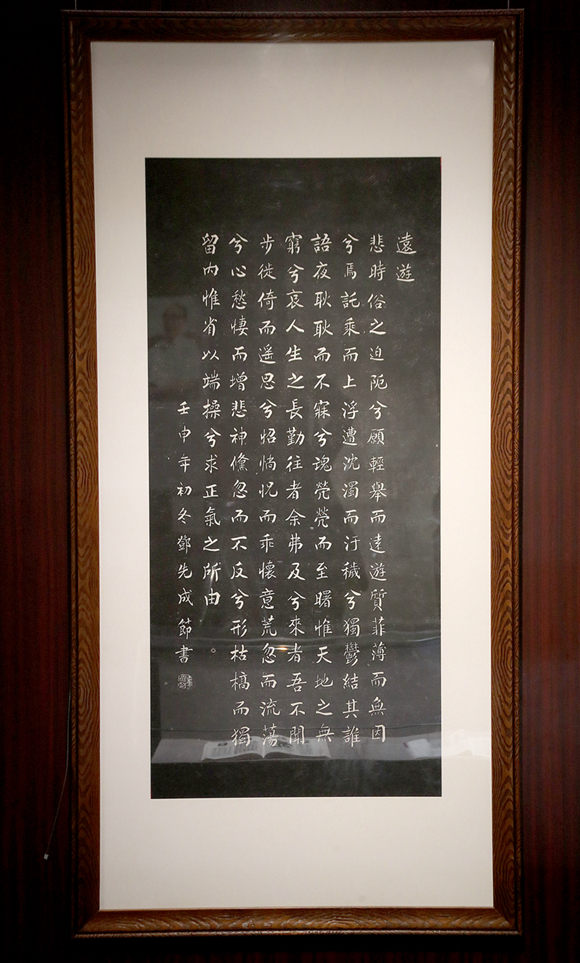 遠遊
悲時俗之迫阨兮願輕舉而遠遊質菲薄而無因
兮焉託乘而上浮遭沈濁而汙穢兮獨鬱結其誰
語夜耿耿而不寐兮魂煢煢而至曙惟天地之無
窮兮哀人生之長勤往者余弗及兮來者吾不聞
步徙倚而遥思兮怊惝怳而乖懷意荒忽而流蕩
兮心愁悽而增悲神儵忽而不反兮形枯槁而獨
留內惟省以端操兮求正氣之所由。
壬申年初冬鄧先成節書